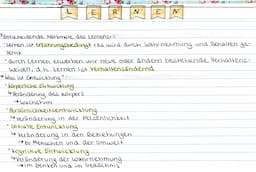 LERNEN
Entscheidende Merkmale des Lernens:
Lernen ist Erfahrungsbedingt, es wird durch Wahrnehmung und Behalten ge-
lernt
durch Lernen erwerben wir neue oder ändern bestehende Verhaltens-
weisen, d.h. Lernen ist Verhaltensändernd
Was ist Entwicklung?
körperliche Entwicklung
Veränderung des Körpers
Wachstum
Persönlichkeitsentwicklung
Veränderung in der Persönlichkeit
soziale Entwicklung
Veränderung in den Beziehungen
zu Menschen und der Umwelt
kognitive Entwicklung
Veränderung der Wahrnehmung
im Denken und im Gedächtnis